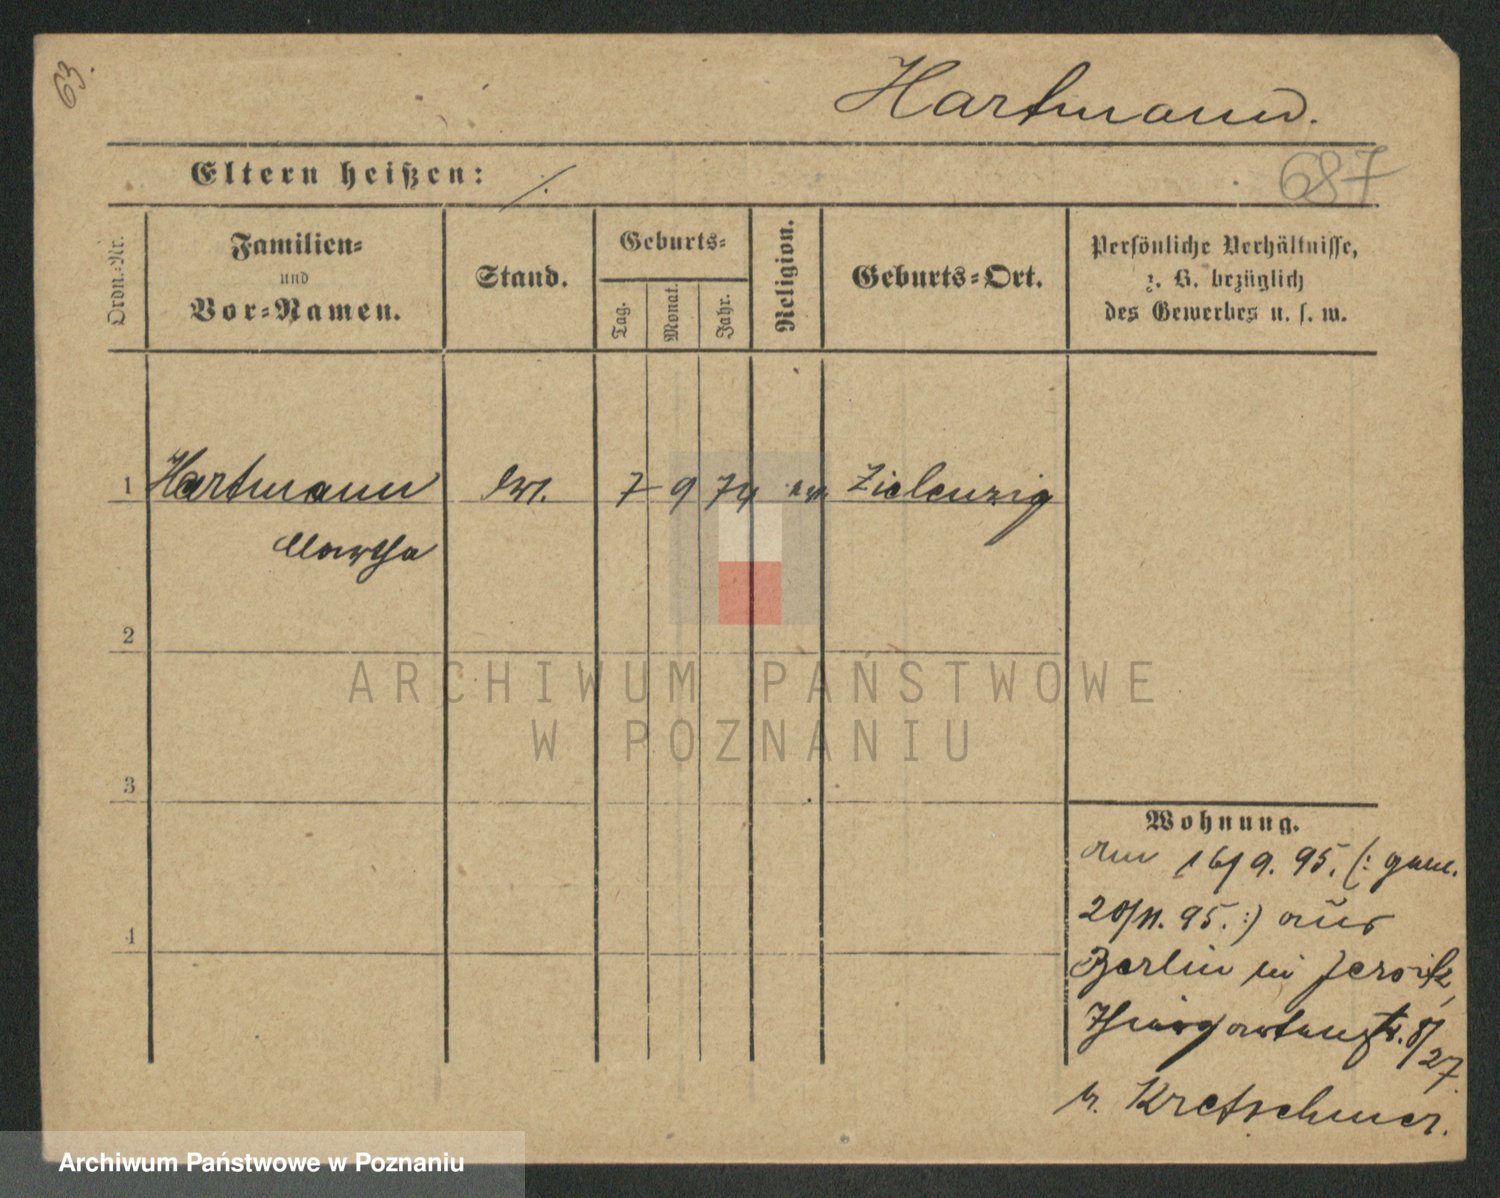 63.
Hartmann.
687
Eltern heißen: /.
Ordn.=Nr.
Familien=
und
Vor=Namen.
Stand.
Geburts=
Tag.
Monat.
Jahr.
Religion.
Geburts=Ort.
Persönliche Verhältnisse,
z. B. bezüglich
des Gewerbes u. s. w.
1 Hartmann 7 9 74 ev Zielenzig
Martha
2
3
4
ARCHIWUM PAŃSTWOWE
W POZNANIU
Wohnung.
am 16/9. 95. (: gem.
20/11. 95. :) aus
Berlin in Jersitz,
Thiergartenstr. 8/
27.
b. Kretschmer.
Archiwum Państwowe w Poznaniu